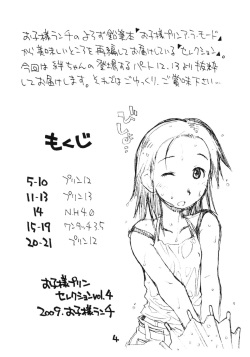 お子様ランチのよろず鉛筆本「お子様プリンアラモード」
から美味しいところを再編してお届けしている「セレクション」。
今回は絆ちゃんの登場するパート12、13より抜粋
してお届けします。それではごゆっくりご賞味下さい〜
びしょ…
もくじ
5-10 プリン12
11-13 プリン13
14 NH40
15-19 ワンタッチ3.5
20-21 プリン12
お子様プリン
セレクションvol.4
2009.お子様ランチ
4